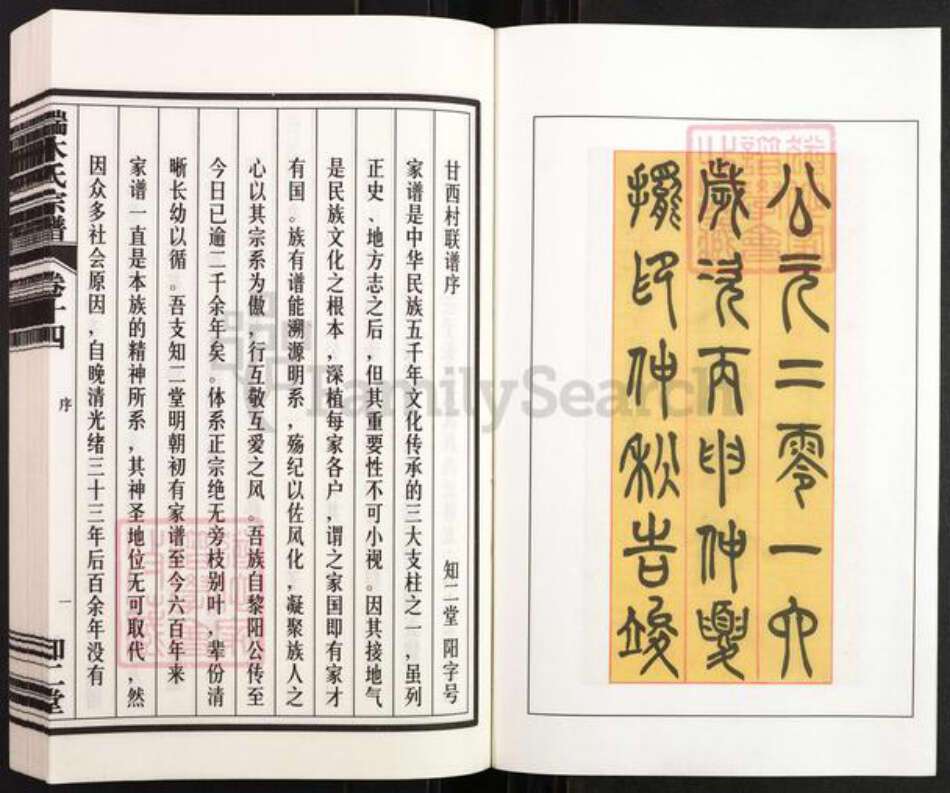 公元二零一六
歲次丙申仲夏
擺印仲秋告竣
甘西村联谱序 知二堂 阳字号
家谱是中华民族五千年文化传承的三大支柱之一，虽列
正史、地方志之后，但其重要性不可小视。因其接地气
是民族文化之根本，深植每家各户，谓之家国即有家才
有国。族有谱能溯源明系，殇纪以佐风化，凝聚族人之
心以其宗系为傲，行互敬互爱之风。吾族自黎阳公传至
今日已逾二千余年矣。体系正宗绝无旁枝别叶，辈份清
晰长幼以循。吾支知二堂明朝初有家谱至今六百年来
家谱一直是本族的精神所系，其神圣地位无可取代，然
因众多社会原因，自晚清光绪三十三年后百余年没有
端木氏宗谱 卷十四 序 一 知二堂
FamilySearch